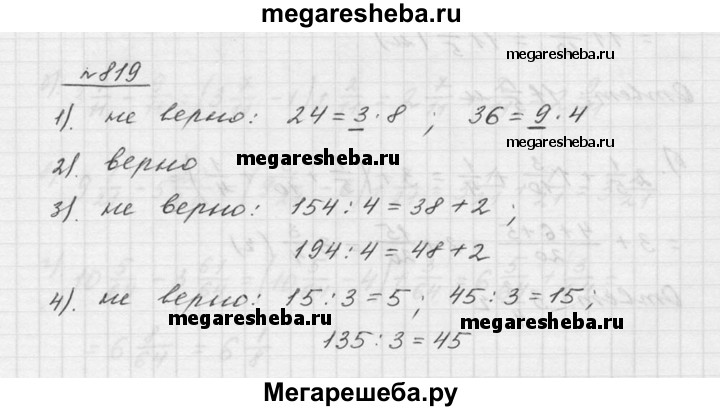 megaresheba.ru
№819
megaresheba.ru
1). не верно: 24 = 3 · 8 ; 36 = 9 · 4
2). верно
megaresheba.ru
megaresheba.ru
3). не верно: 154 : 4 = 38 + 2 ;
194 : 4 = 48 + 2
4). не верно: 15 : 3 = 5 ; 45 : 3 = 15;
megaresheba.ru
megaresheba.ru
135 : 3 = 45
Мегарешеба.ру